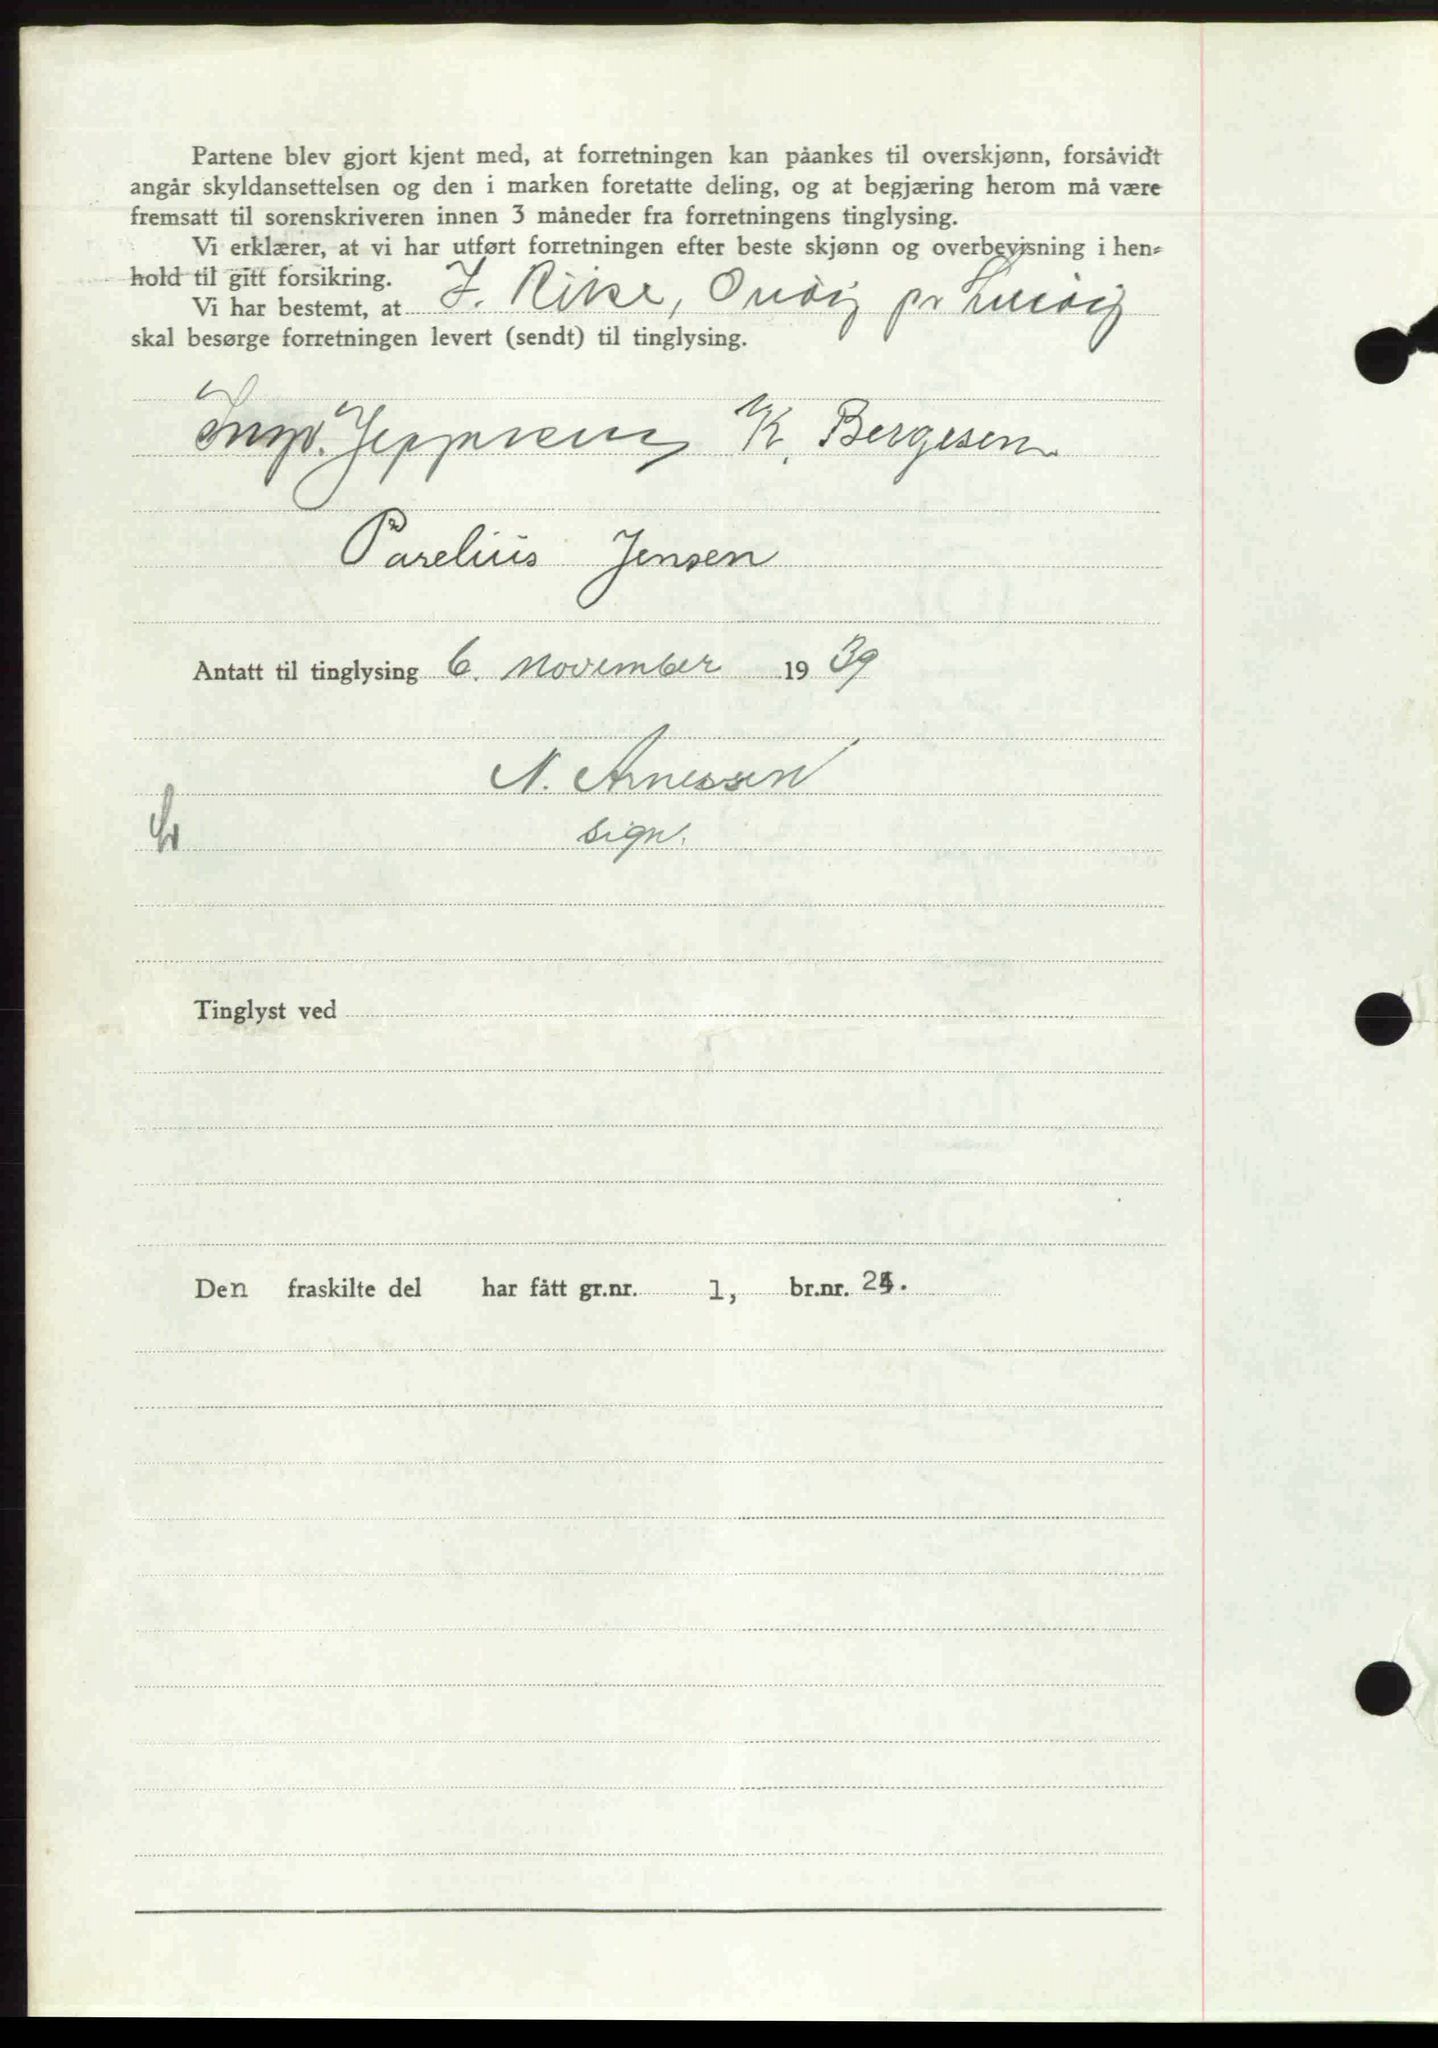 Partene blev gjort kjent med, at forretningen kan påankes til overskjønn, forsåvidt
angår skyldansettelsen og den i marken foretatte deling, og at begjæring herom må være
fremsatt til sorenskriveren innen 3 måneder fra forretningens tinglysing.
Vi erklærer, at vi har utført forretningen efter beste skjønn og overbevisning i hen-
hold til gitt forsikring.
Vi har bestemt, at J. Rike, Onöig pr
skal besørge forretningen levert (sendt) til tinglysing.
Ingv. Jeppesen K. Bergesen
Parelius Jensen
Antatt til tinglysing 6. November 19 39
N. Arnessen
sign.
Tinglyst ved
Den fraskilte del har fått gr.nr. 1, br.nr. 24.